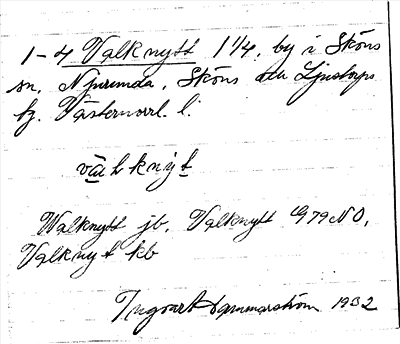 1-4 Valknytt 1 1/4, by i Sköns
sn, Njurunda, Sköns och Ljustorps
tg. Västernorrl. l.
Walknytt jb, Valknytt G79NO,
Valknyt kb
Ingvart Hammarström 1932